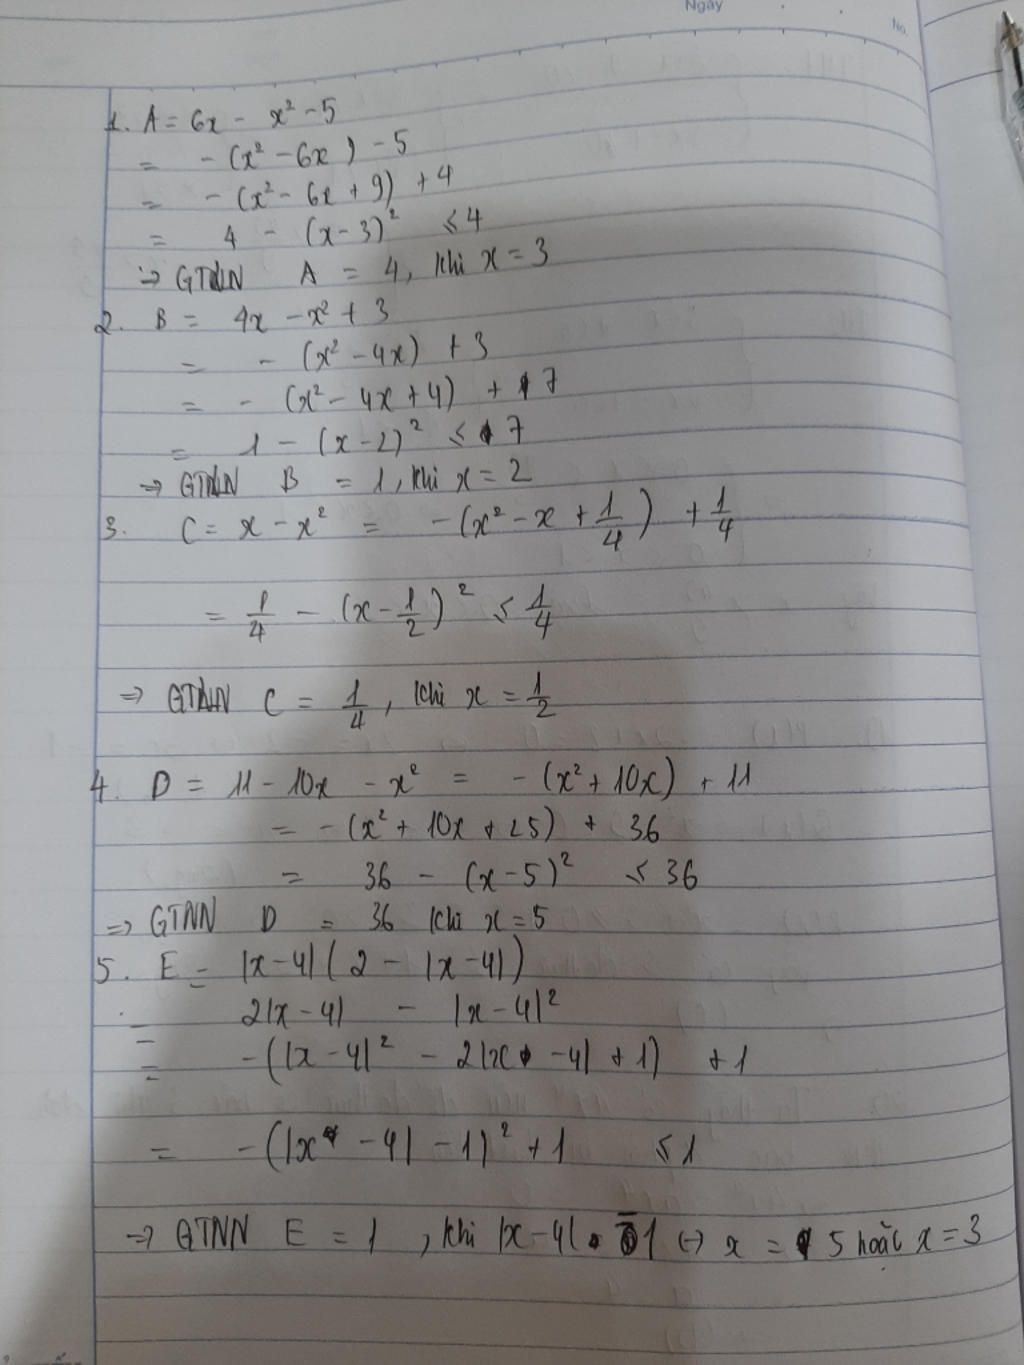 Ngày
No.
1. A = 6x - x² - 5
= - (x² - 6x) - 5
= - (x² - 6x + 9) + 4
= 4 - (x - 3)² ≤ 4
⇒ GTNN A = 4, khi x = 3
2. B = 4x - x² + 3
= - (x² - 4x) + 3
= - (x² - 4x + 4) + 7
= 1 - (x - 2)² ≤ 7
⇒ GTNN B = 1, khi x = 2
3. C = x - x² = - (x² - x + 1/4) + 1/4
= 1/4 - (x - 1/2)² ≤ 1/4
⇒ GTNN C = 1/4, khi x = 1/2
4. D = 11 - 10x - x² = - (x² + 10x) + 11
= - (x² + 10x + 25) + 36
= 36 - (x - 5)² ≤ 36
⇒ GTNN D = 36 khi x = 5
5. E = |x - 4| (2 - |x - 4|)
= 2|x - 4| - |x - 4|²
= - (|x - 4|² - 2|x - 4| + 1) + 1
= - (|x - 4| - 1)² + 1 ≤ 1
⇒ GTNN E = 1, khi |x - 4| = 1 ↔ x = 5 hoặc x = 3